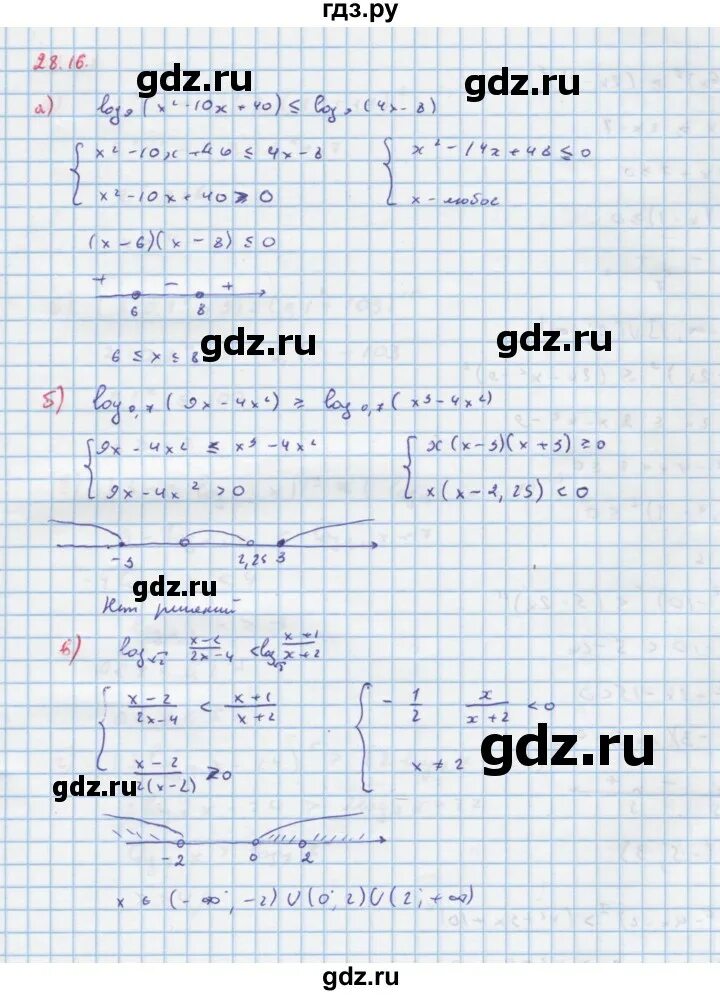 гдз.ру
28.16.
gdz.ru
gdz.ru
а) log₉(x²-10x+40) ≤ log₉(4x-8)
{ x²-10x+40 ≤ 4x-8 { x²-14x+48 ≤ 0
x²-10x+40 > 0 x - любое
(x-6)(x-8) ≤ 0
+ - +
6 8
gdz.ru
gdz.ru
6 ≤ x ≤ 8
б) log₀,₇(9x-4x²) ≥ log₀,₇(x³-4x²)
{ 9x-4x² ≤ x³-4x² { x(x-3)(x+3) ≥ 0
9x-4x² > 0 x(x-2,25) < 0
-3 2,25 3
gdz.ru
gdz.ru
Нет решений
в) log√2 (x-2)/(2x-4) < log√2 (x+1)/(x+2)
{ (x-2)/(2x-4) < (x+1)/(x+2) { -1/2 x/(x+2) < 0
(x-2)/2(x-2) > 0 x ≠ 2
gdz.ru
gdz.ru
-2 0 2
x ∈ (-∞; -2) ∪ (0; 2) ∪ (2; +∞)
gdz.ru